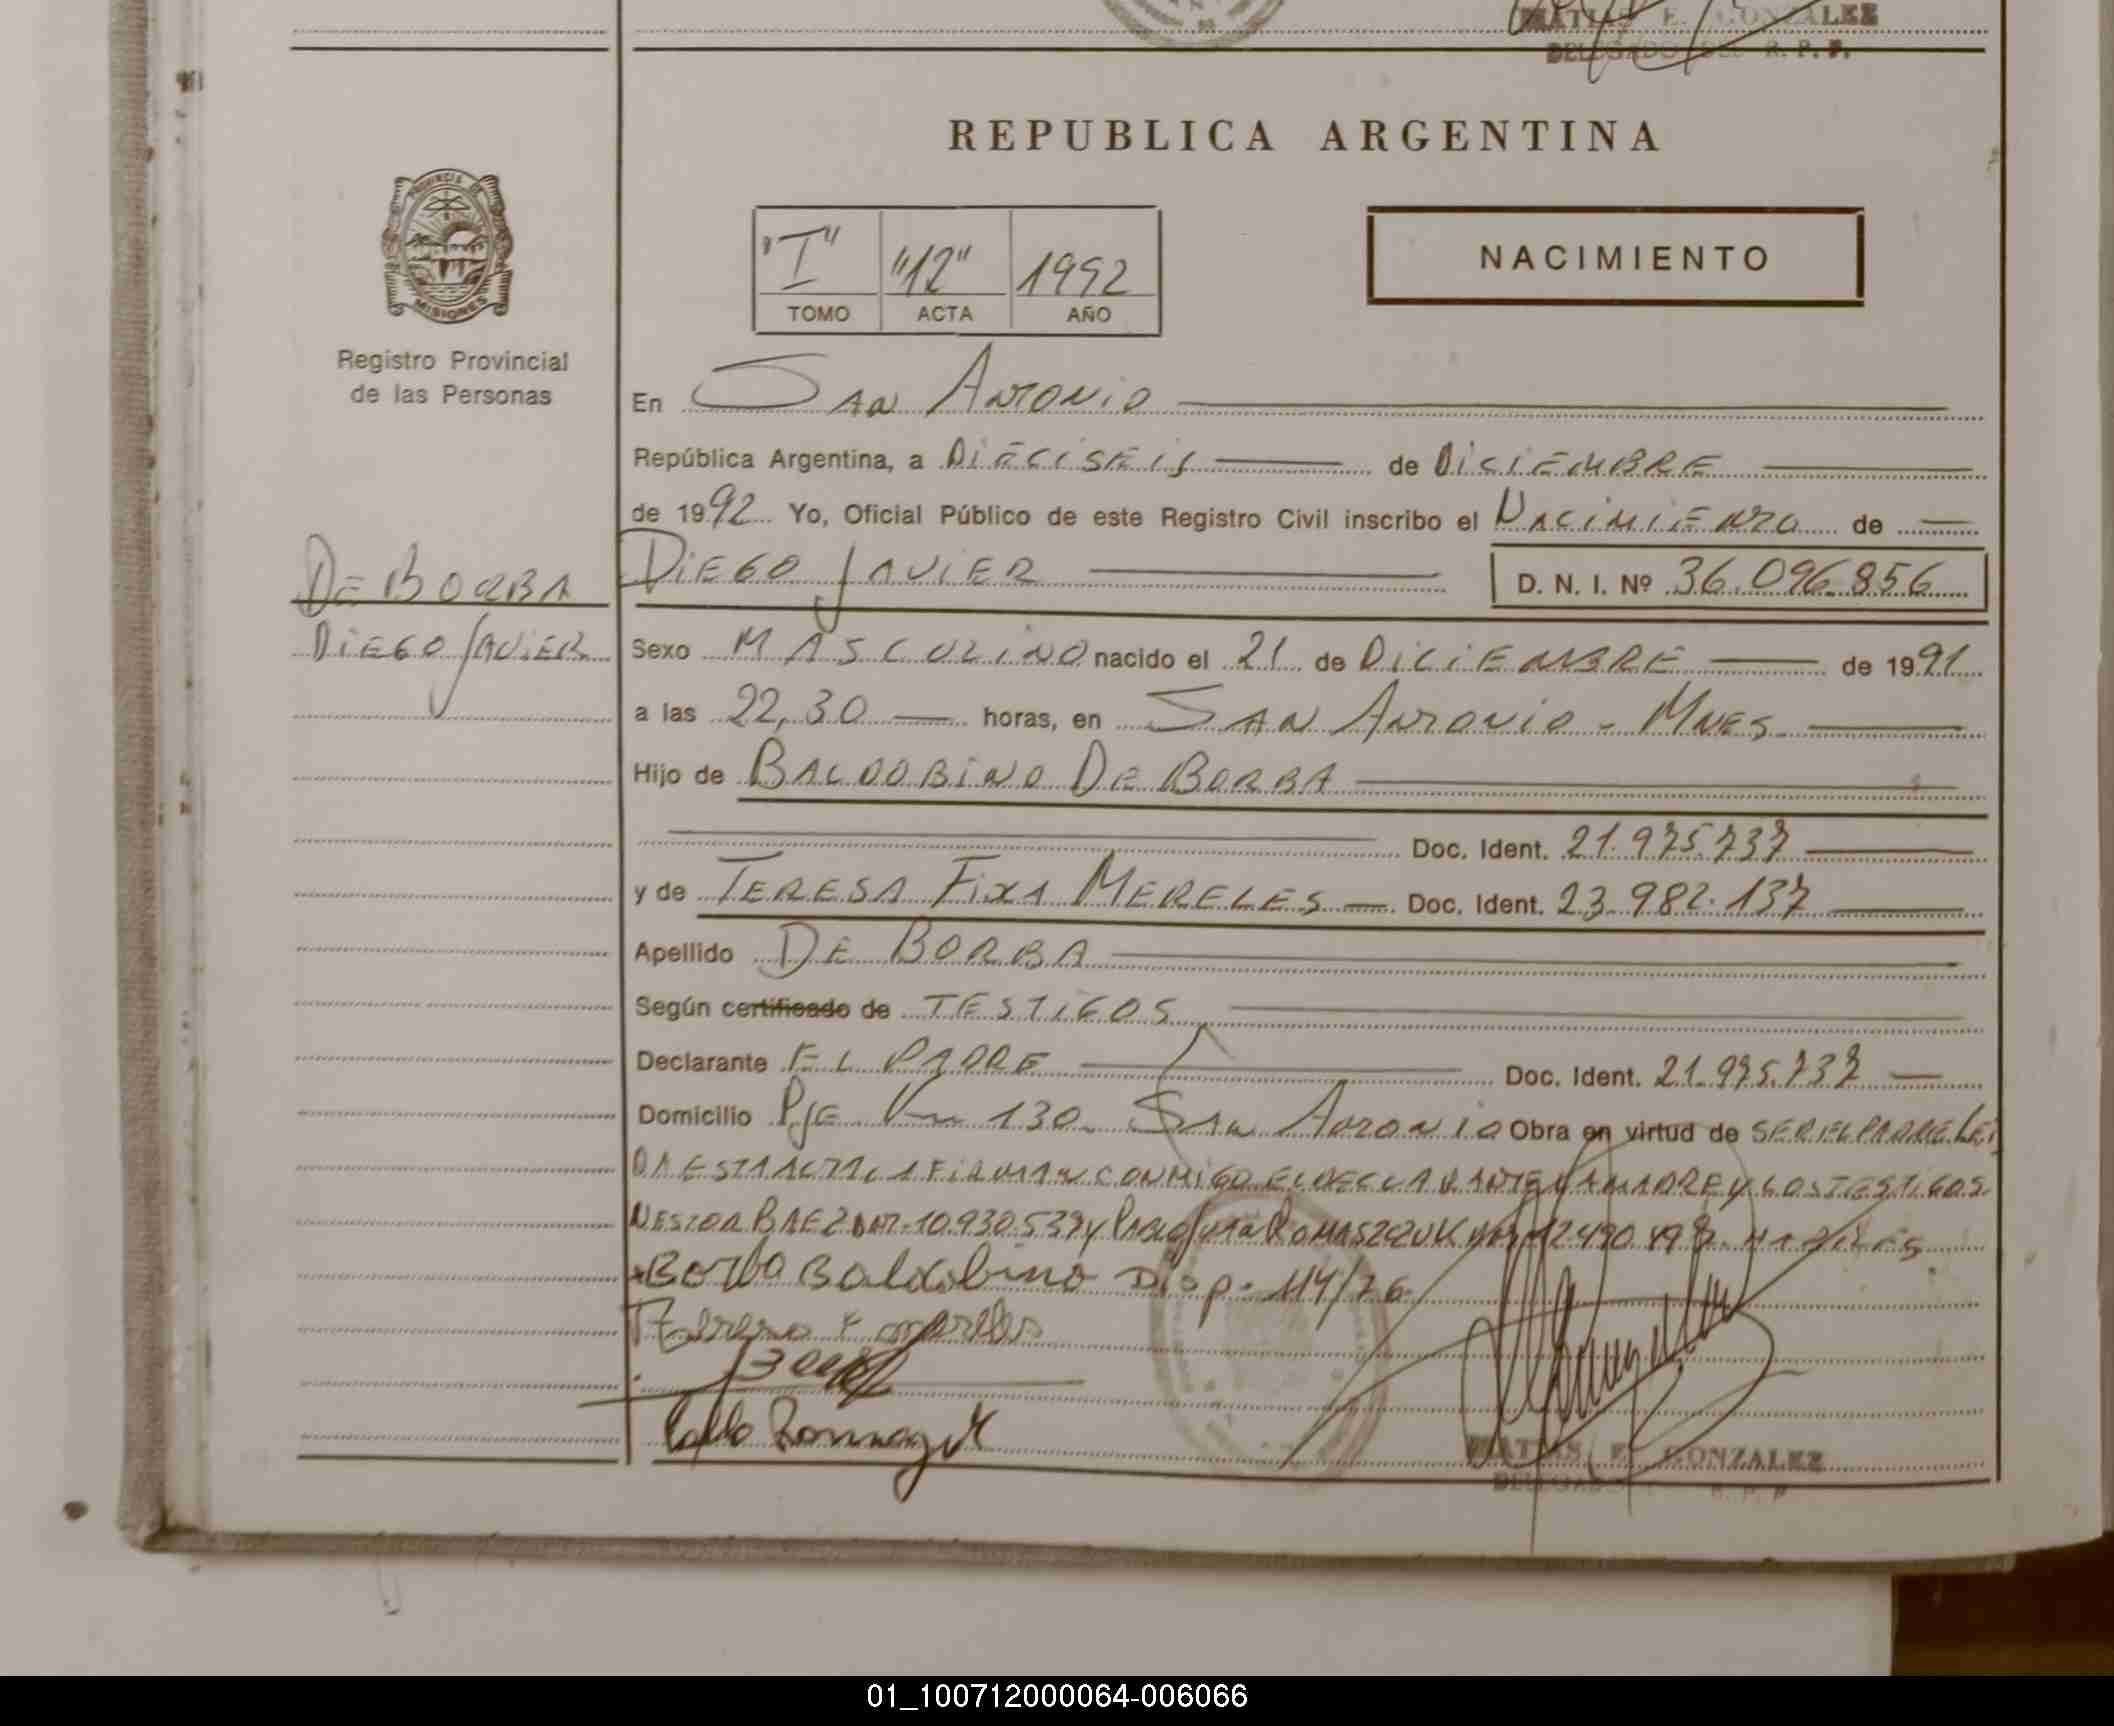 MATIAS E. GONZALEZ
DELEGADO DEL R. P. P.
REPUBLICA ARGENTINA
PROVINCIA DE
MISIONES
Registro Provincial
de las Personas
"I" "12" 1992
TOMO ACTA AÑO
NACIMIENTO
En San Antonio
República Argentina, a DIECISEIS de DICIEMBRE
de 1992 Yo, Oficial Público de este Registro Civil inscribo el NACIMIENTO de
DE BORBA
DIEGO JAVIER
DIEGO JAVIER D. N. I. Nº 36.096.856
Sexo MASCULINO nacido el 21 de DICIEMBRE de 1991
a las 22,30 horas, en SAN ANTONIO - MNES
Hijo de BALDOBINO DE BORBA
Doc. Ident. 21.975.737
y de TERESA FIXA MERELES Doc. Ident. 23.982.137
Apellido DE BORBA
Según certificado de TESTIGOS
Declarante EL PADRE Doc. Ident. 21.975.737
Domicilio Pje Km 130 San Antonio Obra en virtud de SER EL PADRE LEI
DA ESTA ACTA, LA FIRMAN CONMIGO EL DECLARANTE LA MADRE Y LOS TESTIGOS
NESTOR BAEZ DNI. 10.930.539 y PABLO ROMASZCZUK
Borba Baldobino Disp. 114/76
Teresa F mereles
Baez
Pablo Romaszuk
MATIAS E. GONZALEZ
DELEGADO R. P. P.
01_100712000064-006066